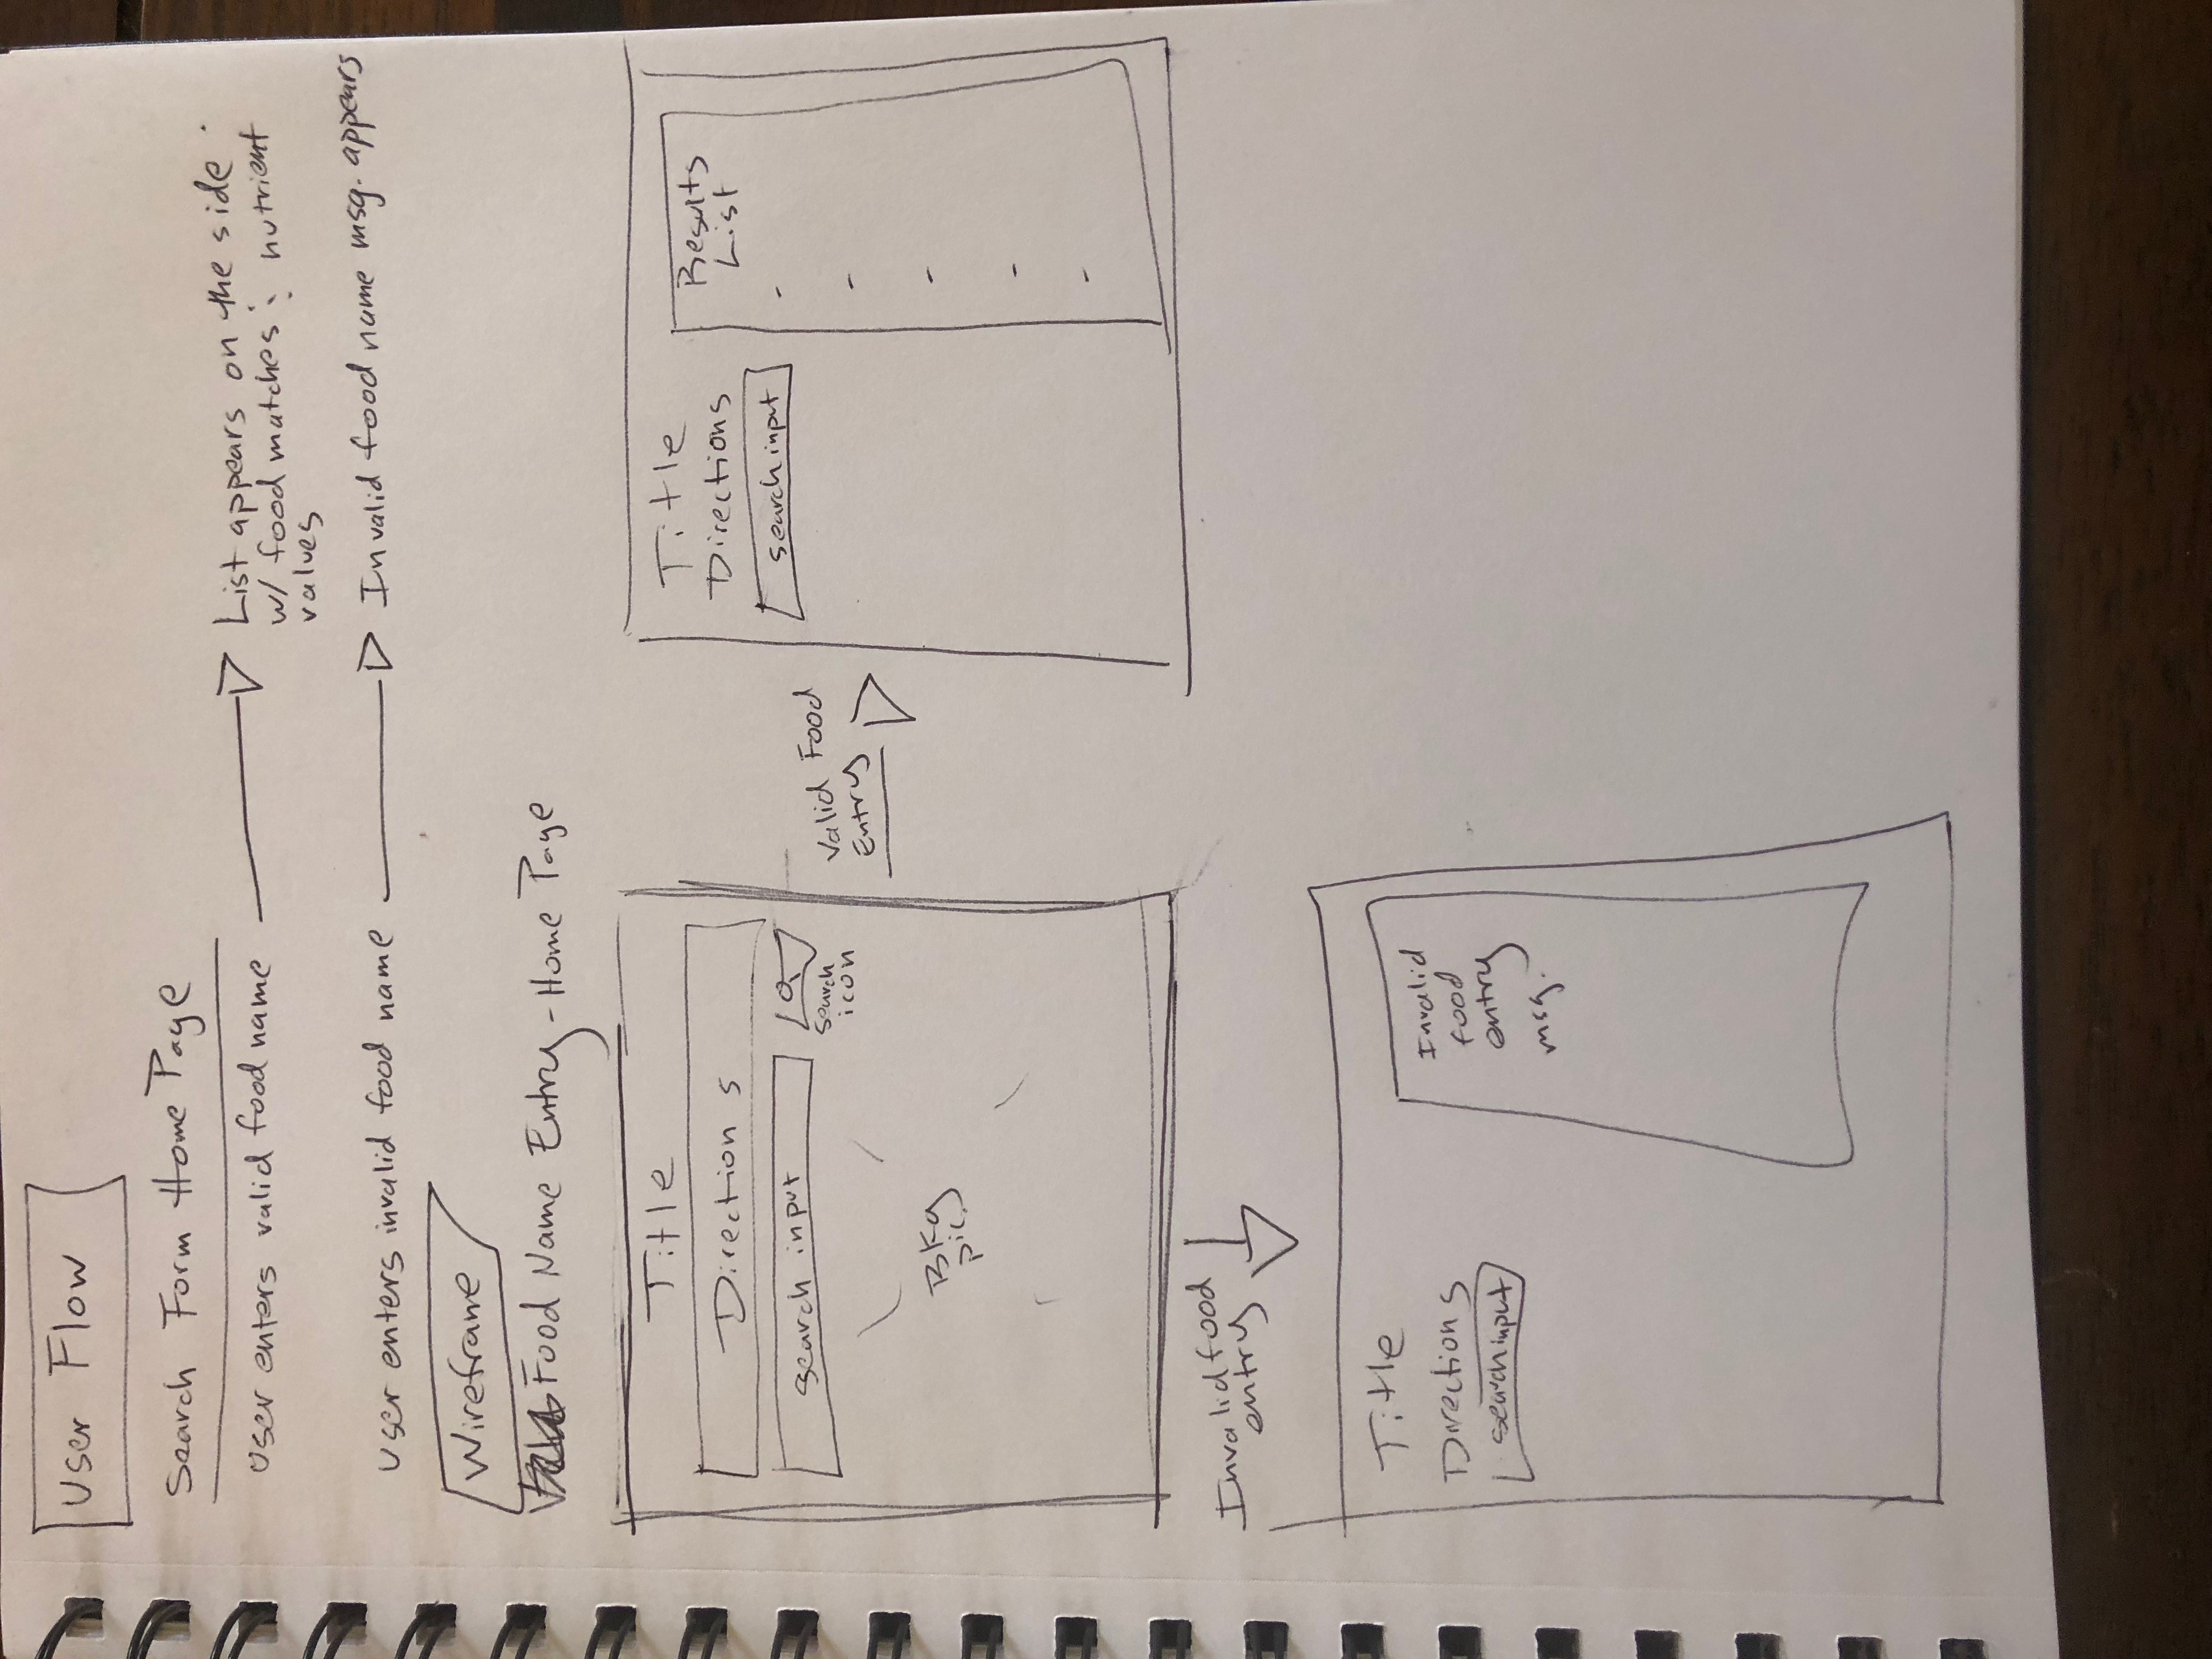 User Flow
Search Form Home Page
User enters valid food name
List appears on the side
w/ food matches : nutrient
values
User enters invalid food name
Invalid food name msg. appears
Wireframe
Food Name Entry - Home Page
Title
Directions
search input
search
icon
Bkg
pic.
Valid Food
Entry
Title
Directions
search input
Results
List
-
-
-
-
-
Invalid food
entry
Title
Directions
search input
Invalid
food
entry
msg.